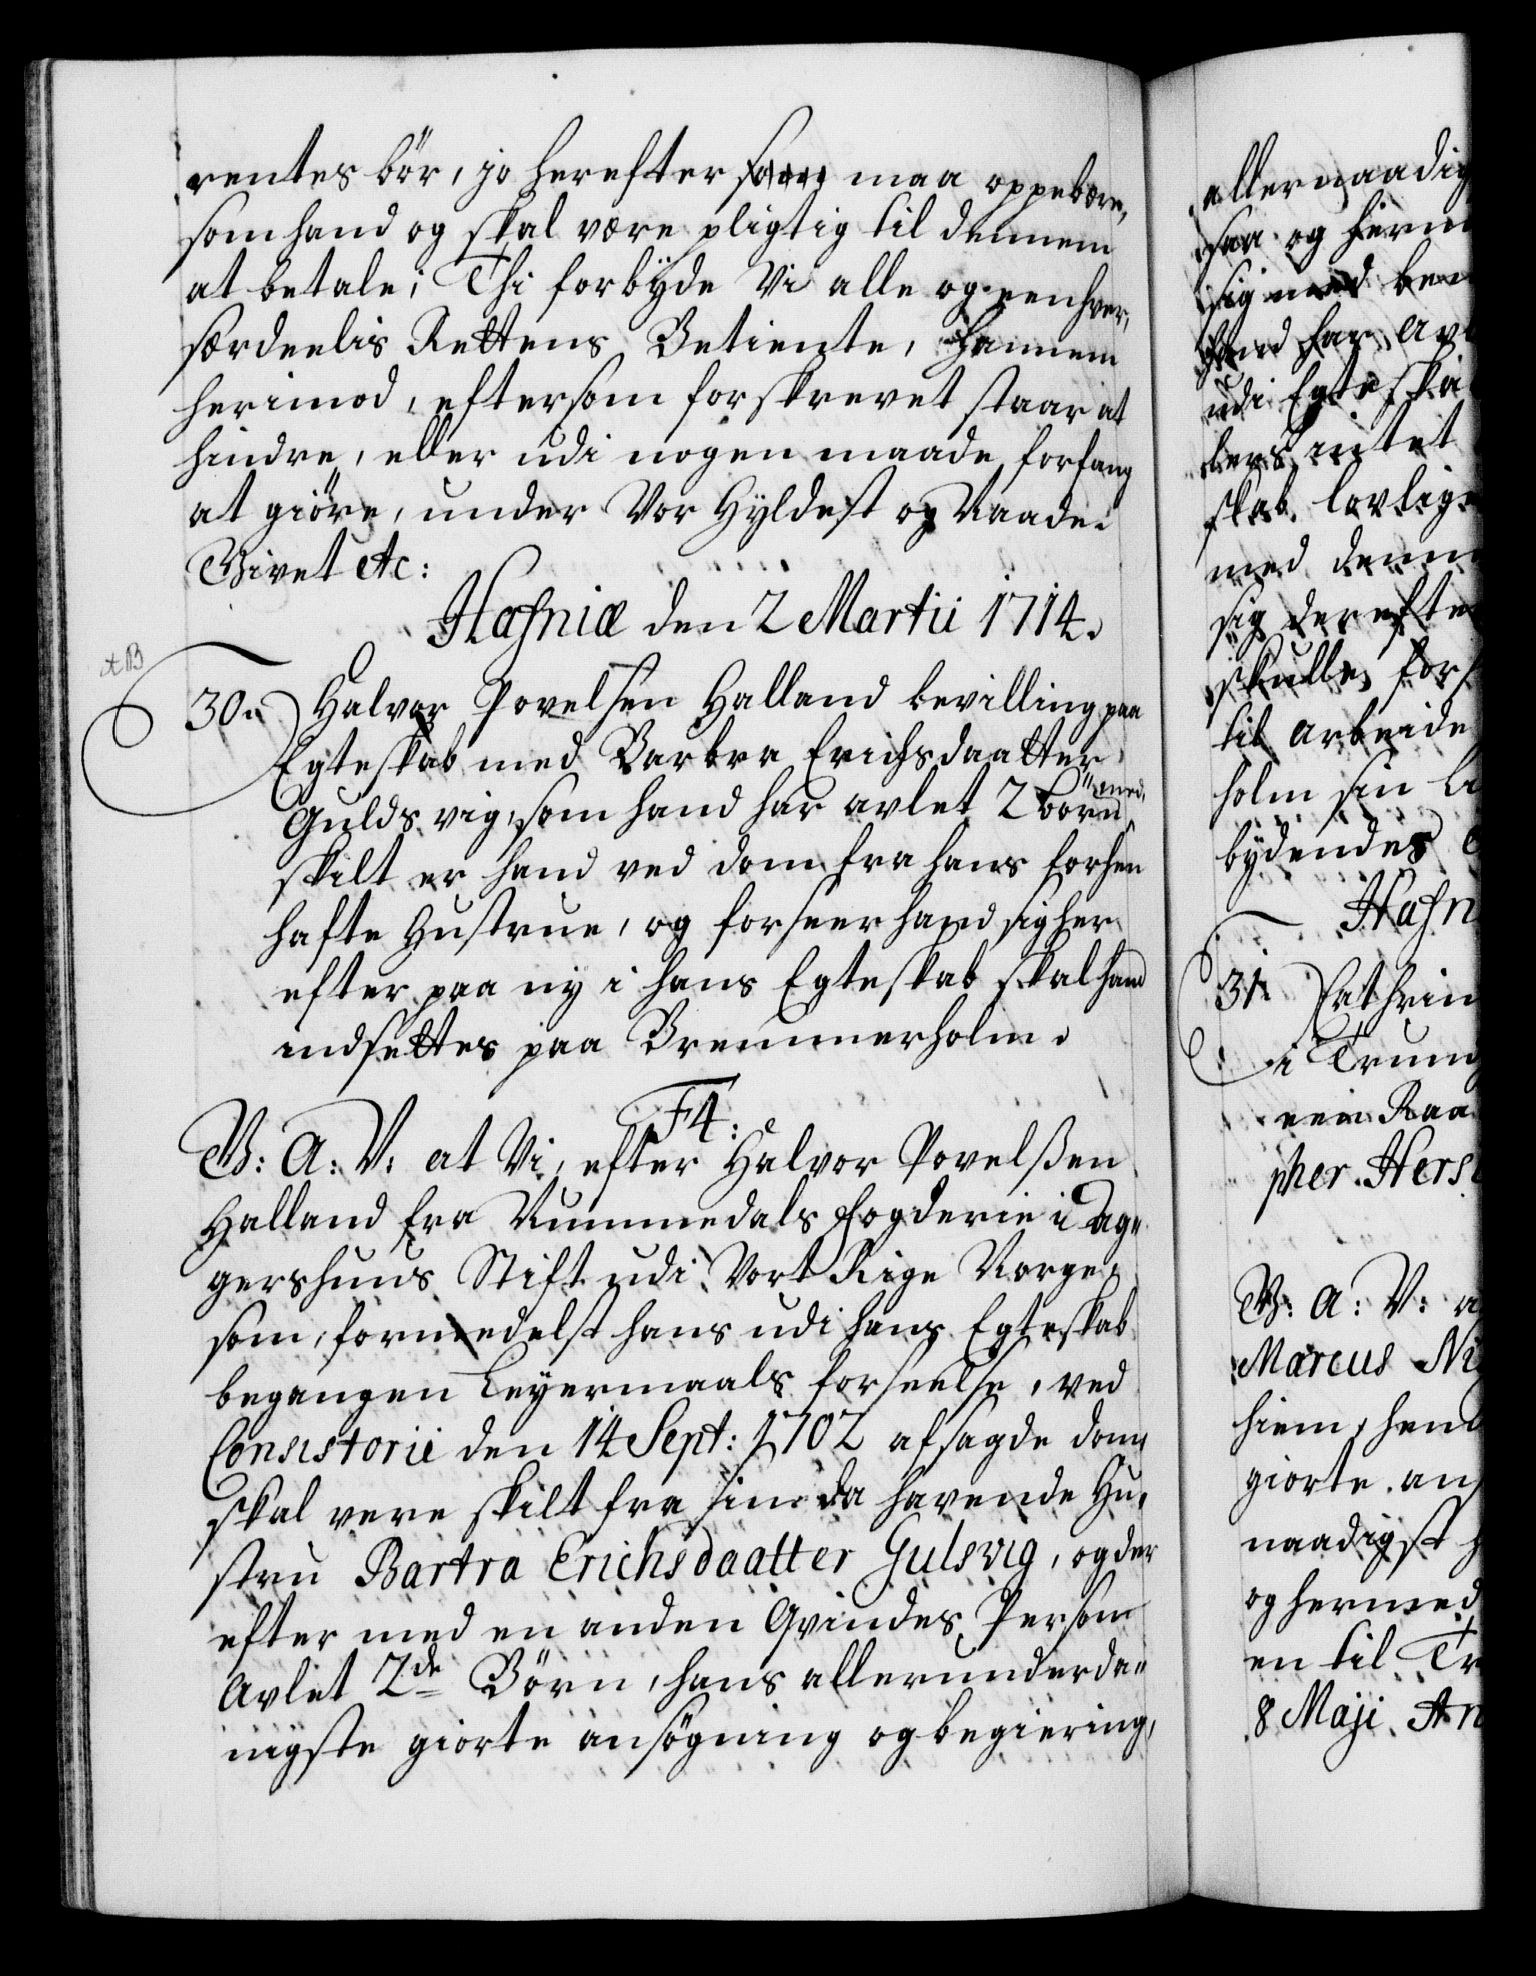 rentes bör, jo herefter maa oppebære,
som hand og skal være pligtig til dennem
at betale; Thi forbyde Vi alle og eenhver,
særdeelis Rettens Betiente, hannem
herimod, eftersom forskrevet staar at
hindre, eller udi nogen maade forfang
at giöre, under Vor Hyldest og Naade.
Givet etc:
Hafniæ den 2 Martii 1714.
AB
30. Halvor Povelsen Halland bevilling paa
Egteskab med Barbra Erichsdaatter
Guldsvig, som hand har avlet 2 börn med,
skilt er hand ved dom fra hans forhen
hafte Hustrue, og forseer hand sig her
efter paa ny i hans Egteskab skal hand
indsettes paa Bremmerholm.
F4:
W: A: V: at Vi, efter Halvor Povelßen
Halland fra Nummedals fogderie i Ag„
gershuus Stift udi Vort Rige Norge,
som, formedelst hans udi hans Egteskab
begangen Leyermaals forseelse, ved
Consistorii den 14 Sept: 1702 afsagde dom
skal vere skilt fra sin da havende Hu„
stru Bartra Erichsdaatter Gulsvig, og der
efter med en anden Qvindes Person
Avlet 2de Börn, hans allerunderda„
nigste giorte ansögning og begiering,
allernaadig
saa og herm
sig med ben
hand har Avl
udi Egteska
lers intet
skab lovlige
med denn
sig derefte
skulle for
til arbeide
holm sin li
bydendes
Hafn
31. Cathrin
i Trum
een Raa
pher Hers
W: A: V: a
Marcus Ni
hiem, hen
giorte an
naadigst
og hermed
en til Tr
8 Maji An